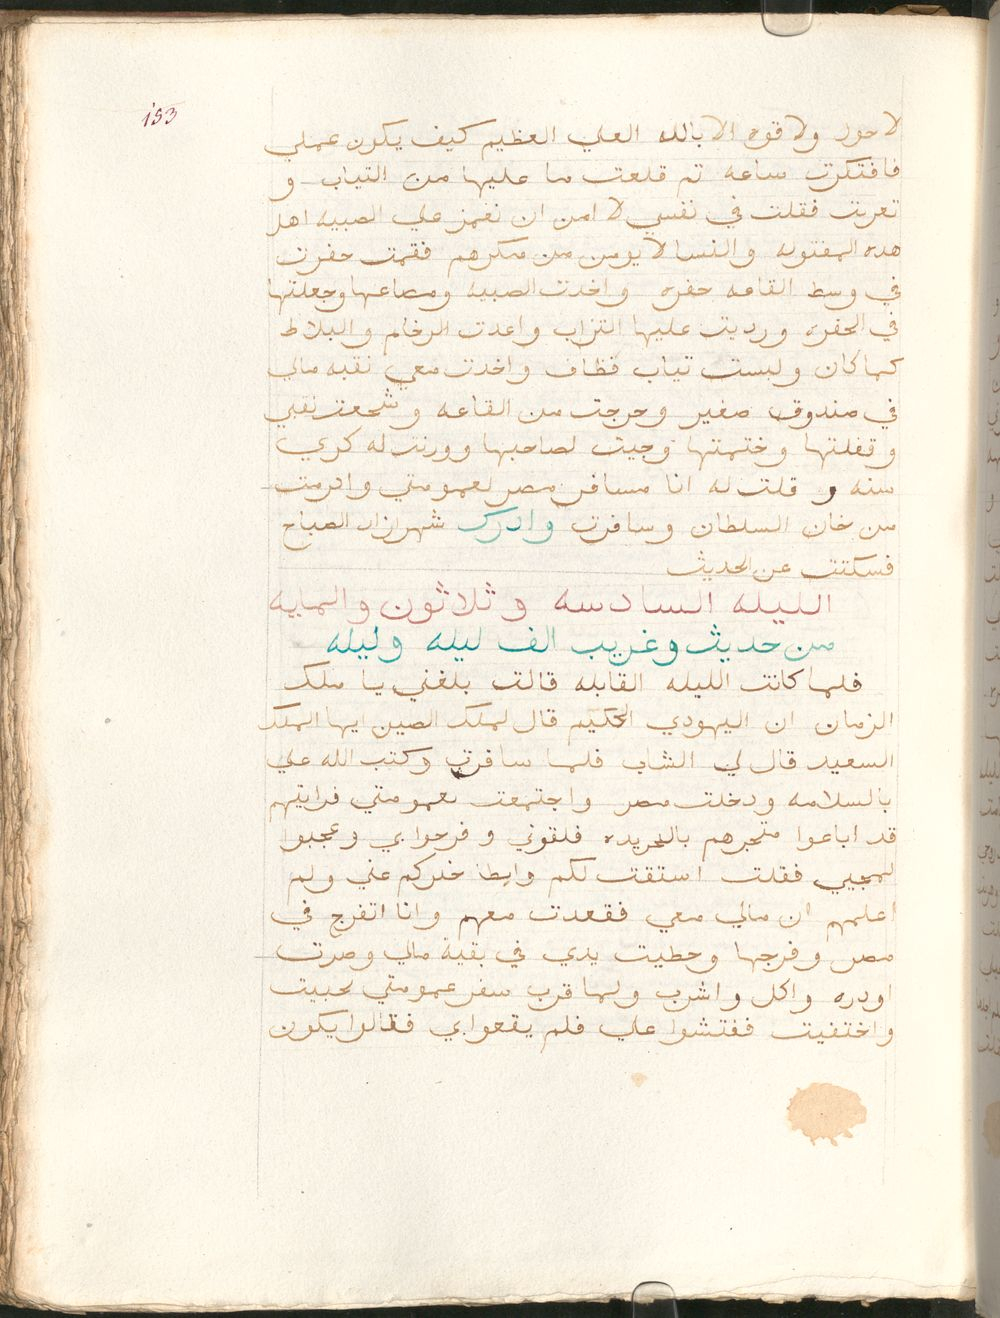 153
لا حول ولا قوه الا بالله العلي العظيم كيف يكون عملي
فافتكرت ساعه تم قلعت ما عليها من التياب و
تعريت فقلت في نفسي لا امن ان تغمز علي الصبيه اهل
هده المفتونه والنسا لا يومن من مكرهم فقمت حفرت
في وسط القاعه حفره واخدت الصبيه ومصاعها وجعلتها
في الحفره ورديت عليها التراب واعدت الرخام والبلاط
كما كان ولبست تياب نظاف واخدت معي بقيه مالي
في صندوق صغير وخرجت من القاعه وشجعت نفسي
وقفلتها وختمتها وجيت لصاحبها ووزنت له كري
سنه و قلت له انا مسافر مصر لعمومتي
من خان السلطان وسافرت وادرك شهرازاد الصباح
فسكتت عن الحديث
الليله السادسه وثلاثون والمايه
من حديث وغريب الف ليله وليله
فلما كانت الليله القابله قالت بلغني يا ملك
الزمان ان اليهودي الحكيم قال لملك الصين ايها الملك
السعيد قال لي الشاب فلما سافرت وكتب الله علي
بالسلامه ودخلت مصر واجتمعت بعمومتي فرايتهم
قد اباعوا متجرهم فلقوني وفرحوا بي وعجبوا
لمجيي فقلت استقت لكم وابطا خبركم عني ولم
اعلمهم ان مالي معي فقعدت معهم وانا اتفرج في
مصر وفرجها وحطيت يدي في بقية مالي وصرت
اودره واكل واشرب ولما قرب سفر عمومتي تخبيت
واختفيت ففتشوا علي فلم يقعوا بي فقالوا يكون